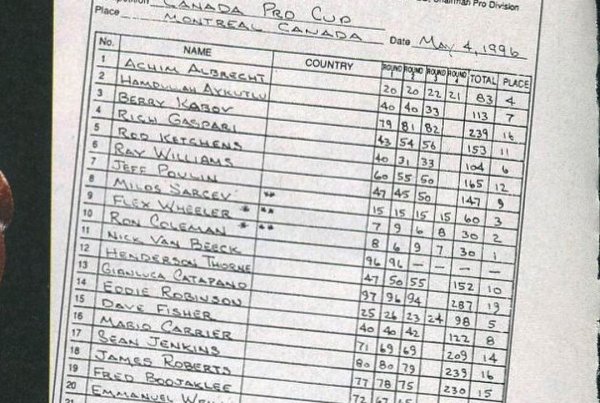 Chairman Pro Division
CANADA PRO CUP
Place MONTREAL CANADA Date MAY 4, 1996
No. NAME COUNTRY ROUND 1 ROUND 2 ROUND 3 ROUND 4 TOTAL PLACE
1 ACHIM ALBRECHT 20 20 22 21 83 4
2 HAMDULLAH AYKUTLU 40 40 33 113 7
3 BERRY KABOV 79 81 82 239 16
4 RICH GASPARI 43 54 56 153 11
5 ROD KETCHENS 40 31 33 104 6
6 RAY WILLIAMS 60 55 50 165 12
7 JEFF POULIN 47 45 50 147 9
8 MILOS SARCEV ** 15 15 15 15 60 3
9 FLEX WHEELER * ** 7 9 6 8 30 2
10 RON COLEMAN * ** 8 6 9 7 30 1
11 NICK VAN BEECK 96 96 — — — —
12 HENDERSON THORNE 47 50 55 152 10
13 GIANLUCA CATAPANO 97 96 94 287 19
14 EDDIE ROBINSON 25 26 23 24 98 5
15 DAVE FISHER 40 40 42 122 8
16 MARIO CARRIER 71 69 69 209 14
17 SEAN JENKINS 80 80 79 239 16
18 JAMES ROBERTS 77 78 75 230 15
19 FRED BOOJAKLEE 72 67
20 EMMANUEL